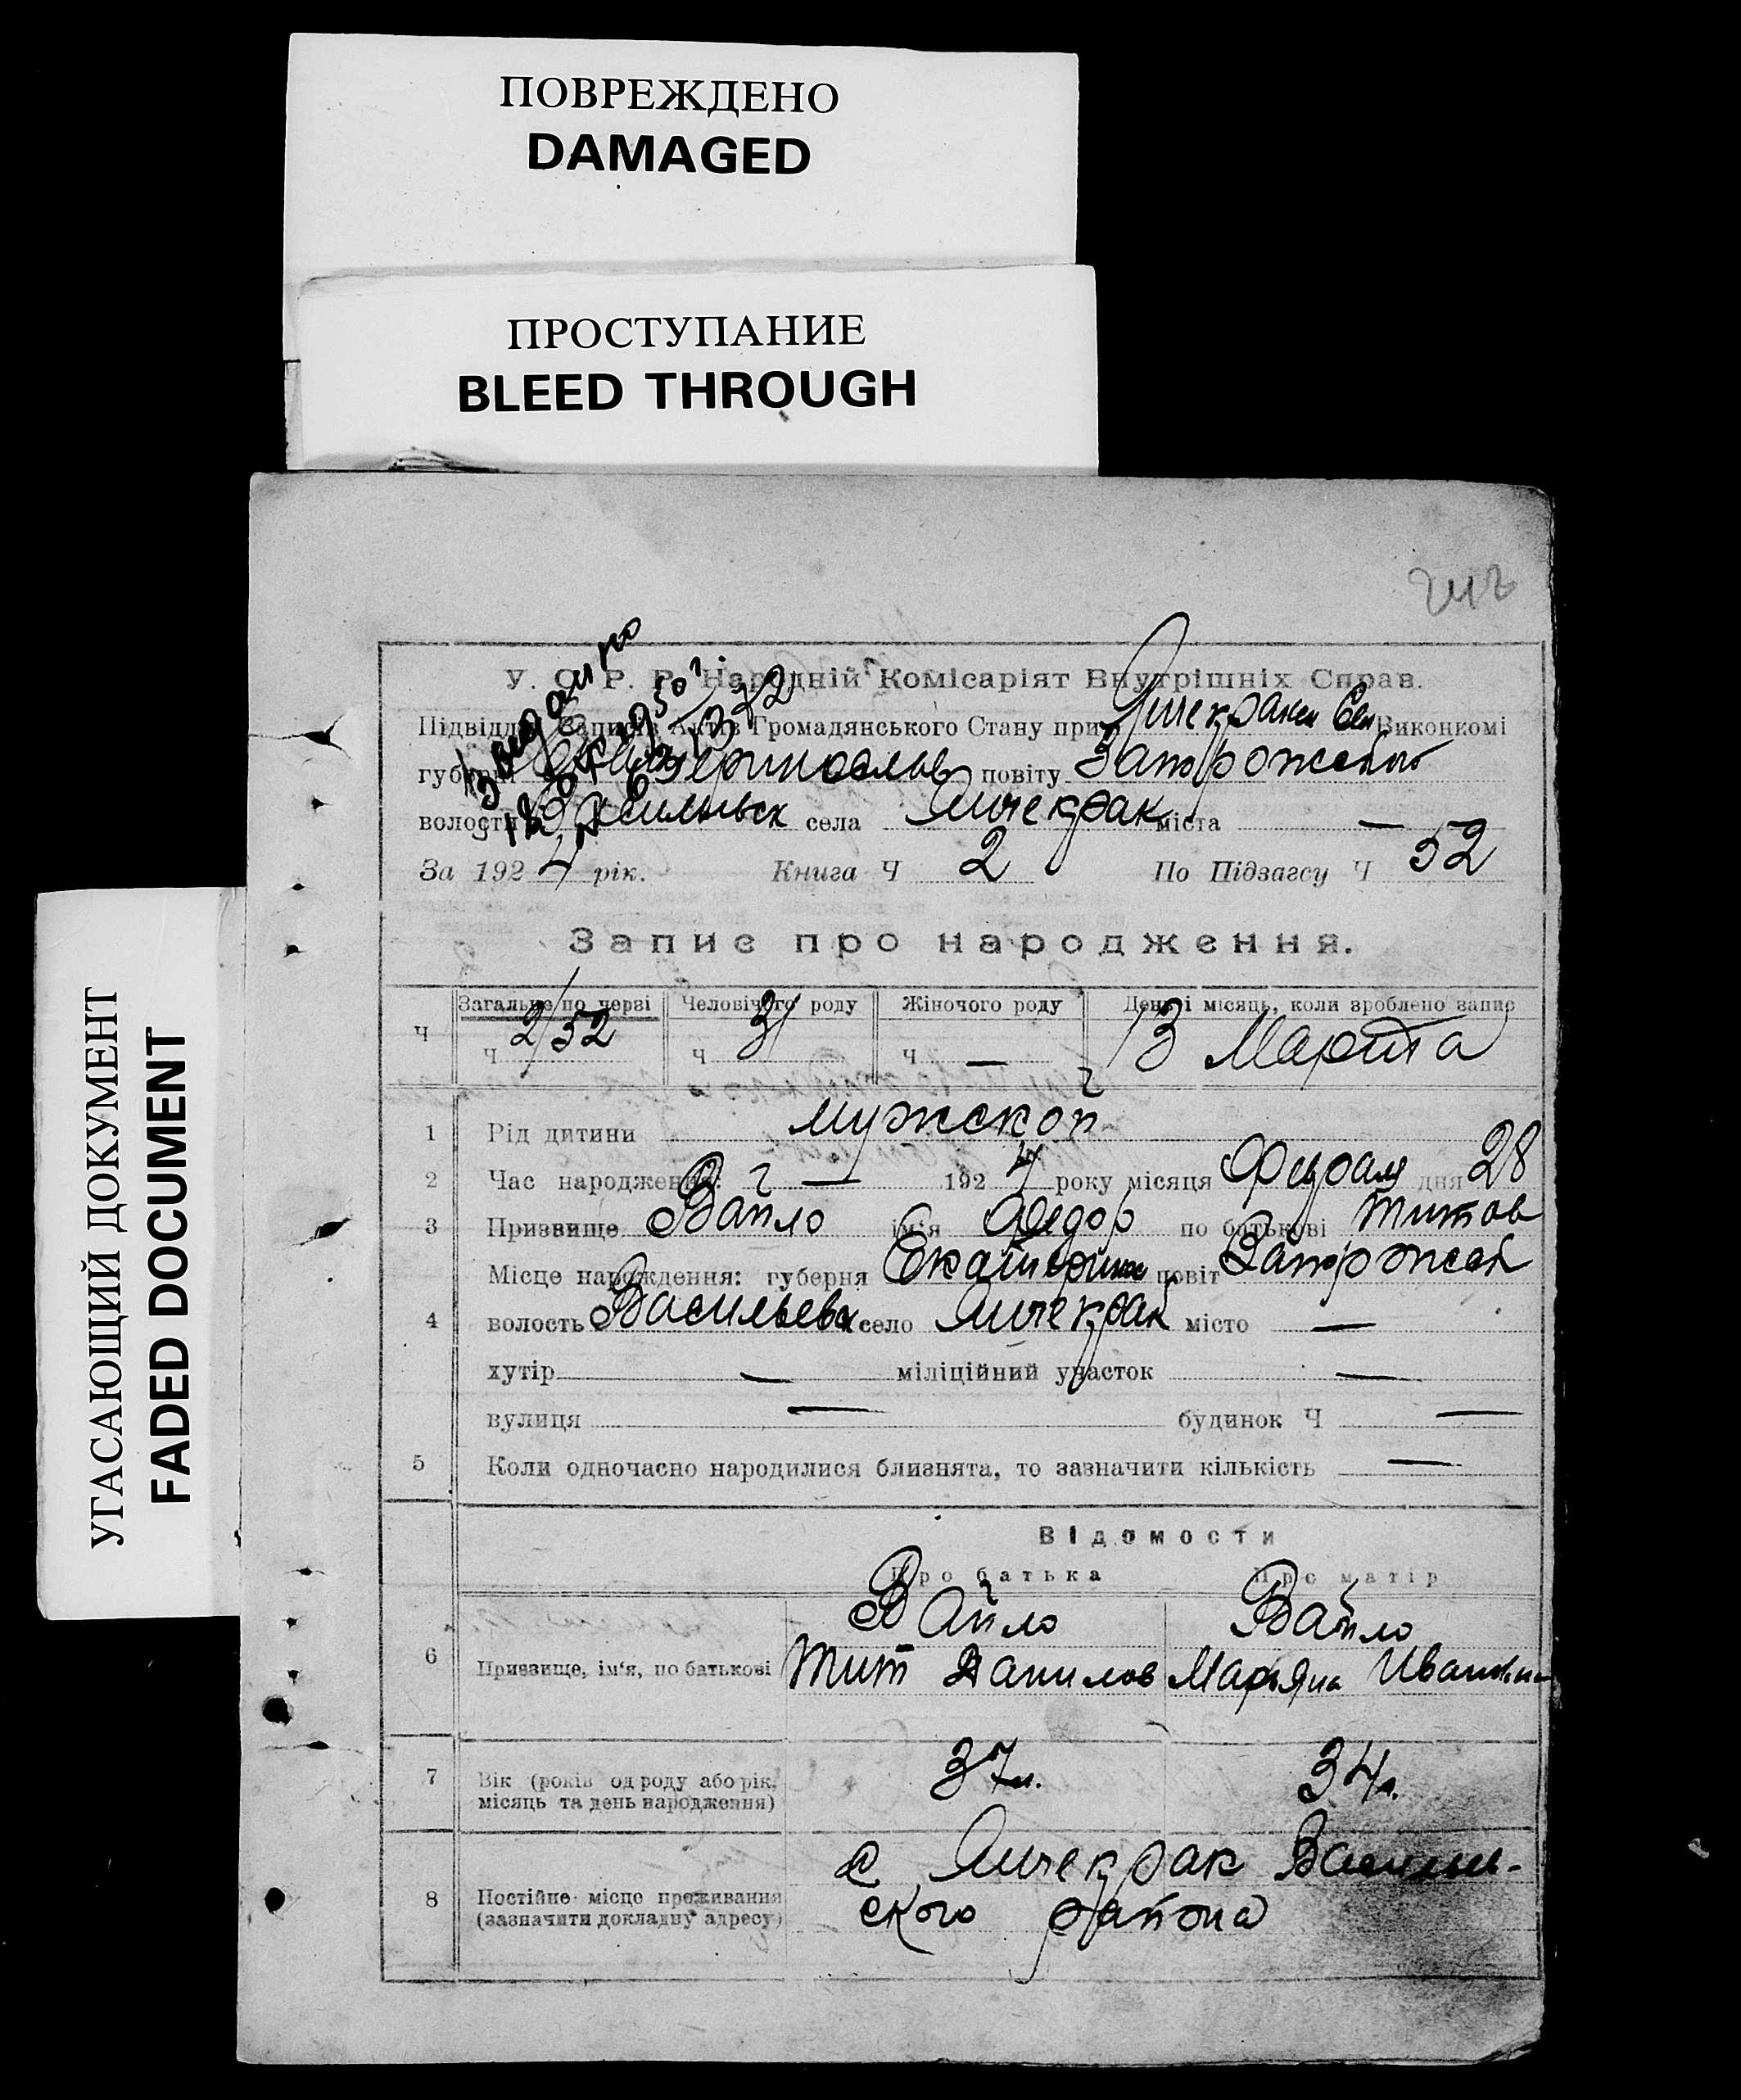 ПОВРЕЖДЕНО
DAMAGED
ПРОСТУПАНИЕ
BLEED THROUGH
УГАСАЮЩИЙ ДОКУМЕНТ
FADED DOCUMENT
У. С. Р. Р. Народній Комісаріят Внутрішніх Справ.
Підвідділ Записів Актів Громадянського Стану при Янчекрак Сел Виконкомі
губерні Екатеринослав повіту
волости села Янчекрак міста —
За 1924 рік. Книга Ч 2 По Підзагсу Ч 52
Запис про народження.
Загальне по черзі Человічого роду Жіночого роду День і місяць, коли зроблено запис
Ч Ч 2/52 Ч 31 Ч — 13 Марта
1 Рід дитини мужской
2 Час народження: — 1924 року місяця дня 28
3 Призвище Вайло ім'я Федор по батькові Титов
Місце народження: губерня повіт
4 волость село Янчекрак місто —
хутір — міліційний участок —
вулиця — будинок Ч —
5 Коли одночасно народилися близнята, то зазначити кількість —
Відомости
Про батька Про матір
Вайло Вайло
6 Призвище, ім'я, по батькові Тит Данилов Марьяна
7 Вік (років од роду або рік, місяць та день народження) 37 л. 34 л.
с Янчекрак Васильев-
8 Постійне місце проживання ского района
(зазначити докладну адресу)